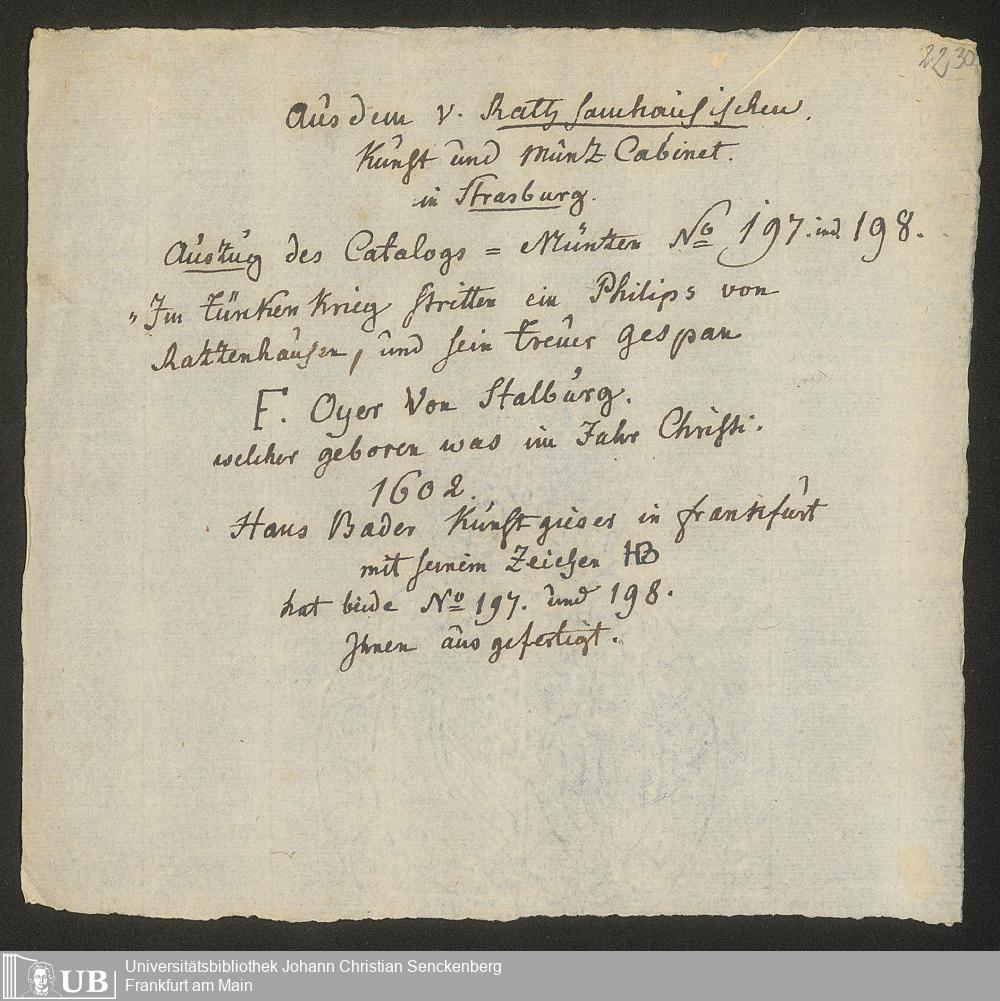 22,30
Aus dem v. Rathsamhausischen
Kunst und Münz Cabinet.
in Strasburg.
Auszug des Catalogs = Müntzen No 197. ind. 198.
„Im Türken Krieg stritten ein Philips von
Ratzenhausen, und sein treuer gespan
F. Oyer Von Stalburg.
welcher geboren was im Jahr Christi.
1602.
Hans Bader Kunst gieser in frankfurt
mit seinem Zeichen HB
hat beide No 197. und 198.
Ihnen aus gefertigt.
UB
Universitätsbibliothek Johann Christian Senckenberg
Frankfurt am Main